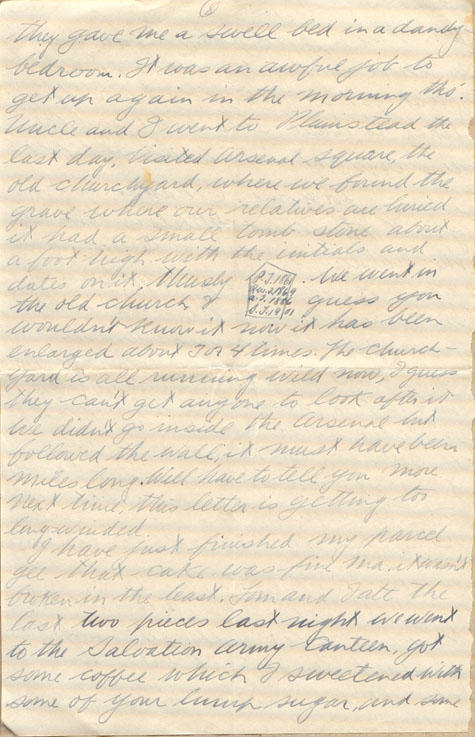 6
they gave me a swell bed in a dandy
bedroom. It was an awful job to
get up again in the morning tho'.
Uncle and I went to Plumstead the
last day. Visited Arsenal square, the
old churchyard, where we found the
grave where our relatives are buried
it had a small tomb stone about
a foot high with the initials and
dates on it, thusly P.J. 18 . We went in
the old church & guess you
wouldn't know it now it has been
enlarged about 3 or 4 times. The church-
yard is all running wild now, I guess
they can't get anyone to look after it
We didn't go inside the Arsenal but
followed the wall, it must have been
miles long. Well have to tell you more
next time, this letter is getting too
long-winded
I have just finished my parcel
gee that cake was fine ma, it wasn't
broken in the least. Tom and I ate the
last two pieces last night we went
to the Salvation Army Canteen, got
some coffee which I sweetened with
some of your lump sugar, and some